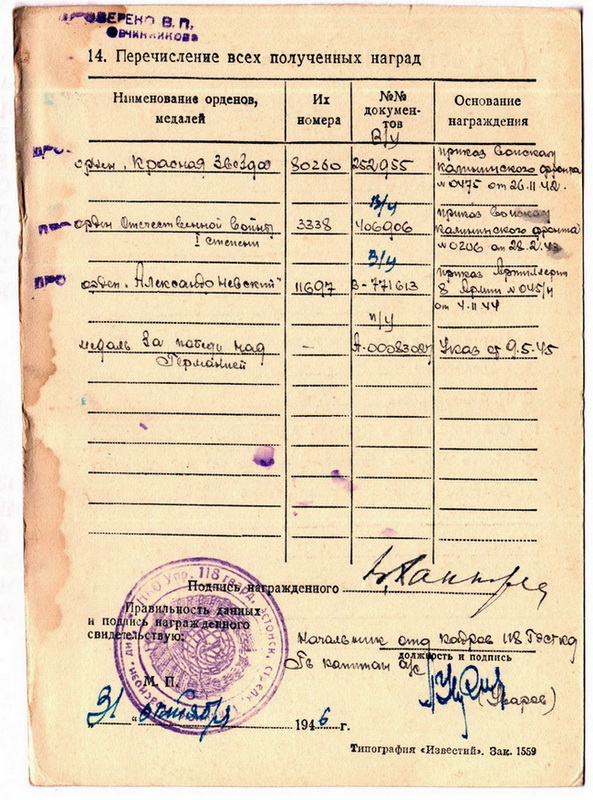 ПРОВЕРЕНО В. П.
ОВЧИННИКОВА
14. Перечисление всех полученных наград
Наименование орденов, медалей
Их номера
№№ документов
Основание награждения
орден „Красная Звезда
80260
В/у
252955
приказ войскам
Калининского фронта
№ 0475 от 26.11.42.
орден Отечественной войны
I степени
3338
В/у
406906
приказ войскам
Калининского фронта
№ 0206 от 28.2.43
орден „Александр Невский"
11697
В/у
В-771613
приказ Артиллерии
8 Армии № 045/н
от 4.11.44
медаль За победу над
Германией
–
п/у
Указ от 9.5.45
Подпись награжденного
Правильность данных
и подпись награжденного
свидетельствую:
Начальник отд кадров 118
Гв капитан а/с
должность и подпись
М. П.
(Уваров)
31 „ октября 1946 г.
Типография «Известий». Зак. 1559